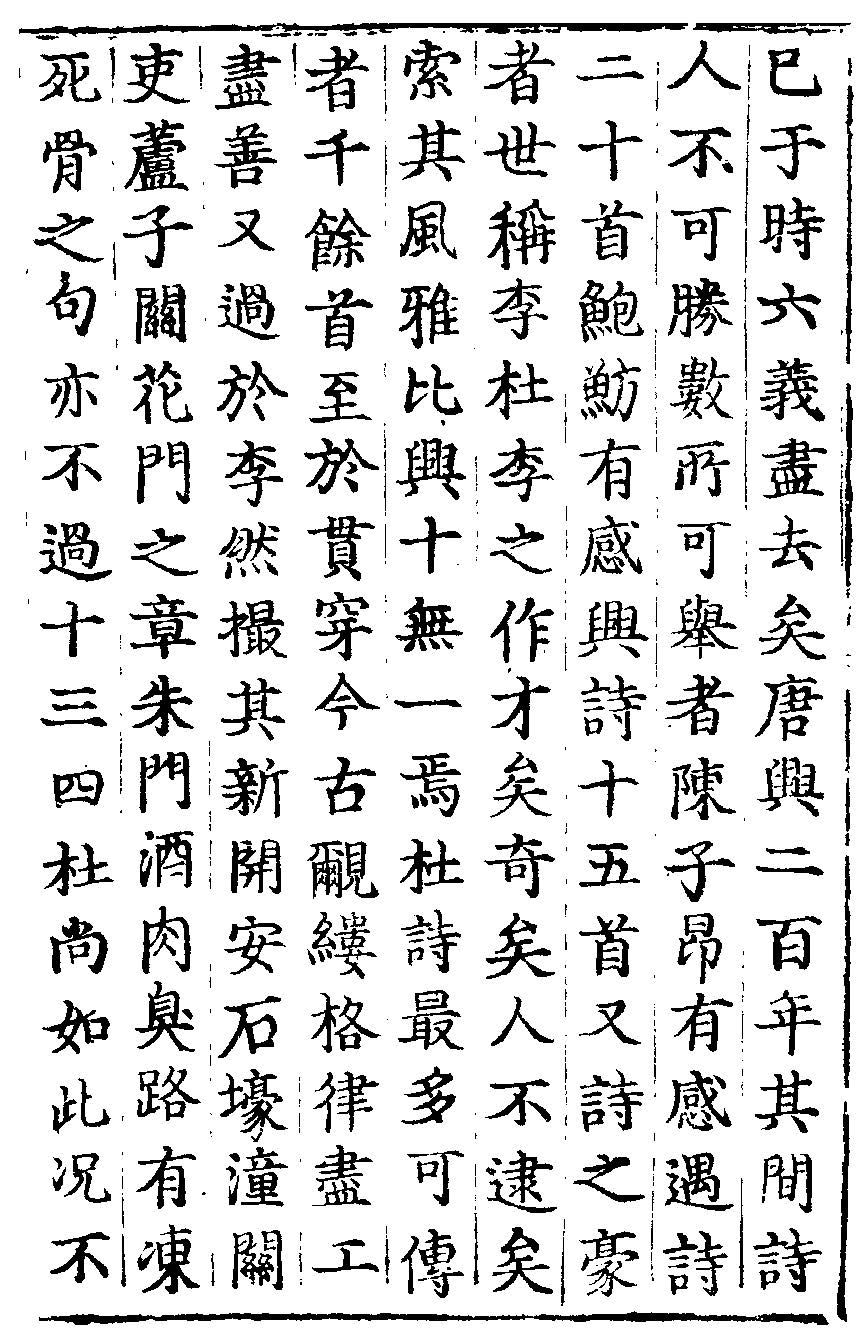 已于時六義盡去矣唐興二百年其間詩
人不可勝數所可舉者陳子昂有感遇詩
二十首鮑魴有感興詩十五首又詩之豪
者世稱李杜李之作才矣奇矣人不逮矣
索其風雅比興十無一焉杜詩最多可傳
者千餘首至於貫穿今古覼縷格律盡工
盡善又過於李然撮其新開安石壕潼關
吏蘆子關花門之章朱門酒肉臭路有凍
死骨之句亦不過十三四杜尚如此况不